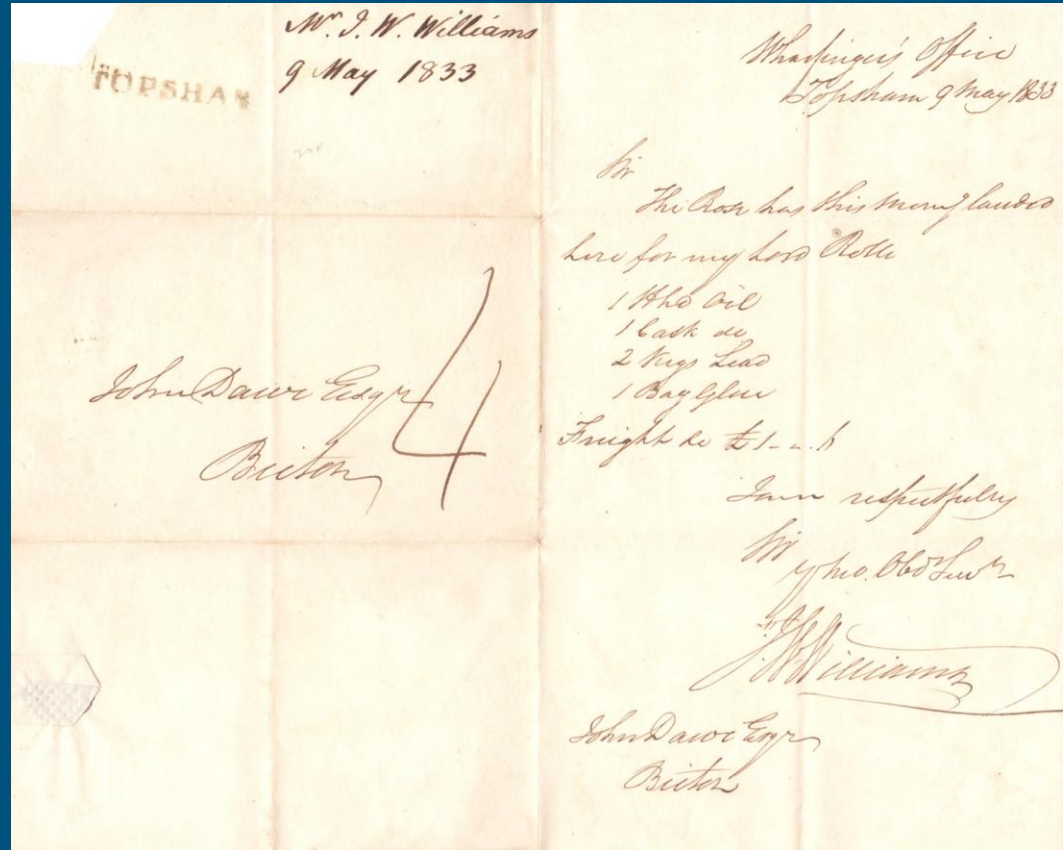 TOPSHAM
Mr. J. W. Williams
9 May 1833
John Dawe Esqr
4
Bicton
Wharfinger's Office
Topsham 9 May 1833
Sir
The Rose has this morng landed
here for my Lord Rolle
1 Hhd Oil
1 Cask do
2 Kegs Lead
1 Bag Glue
Freight do £1 - " -
I am respectfully
Sir
Obd Servt
J W Williams
John Dawe Esqr
Bicton